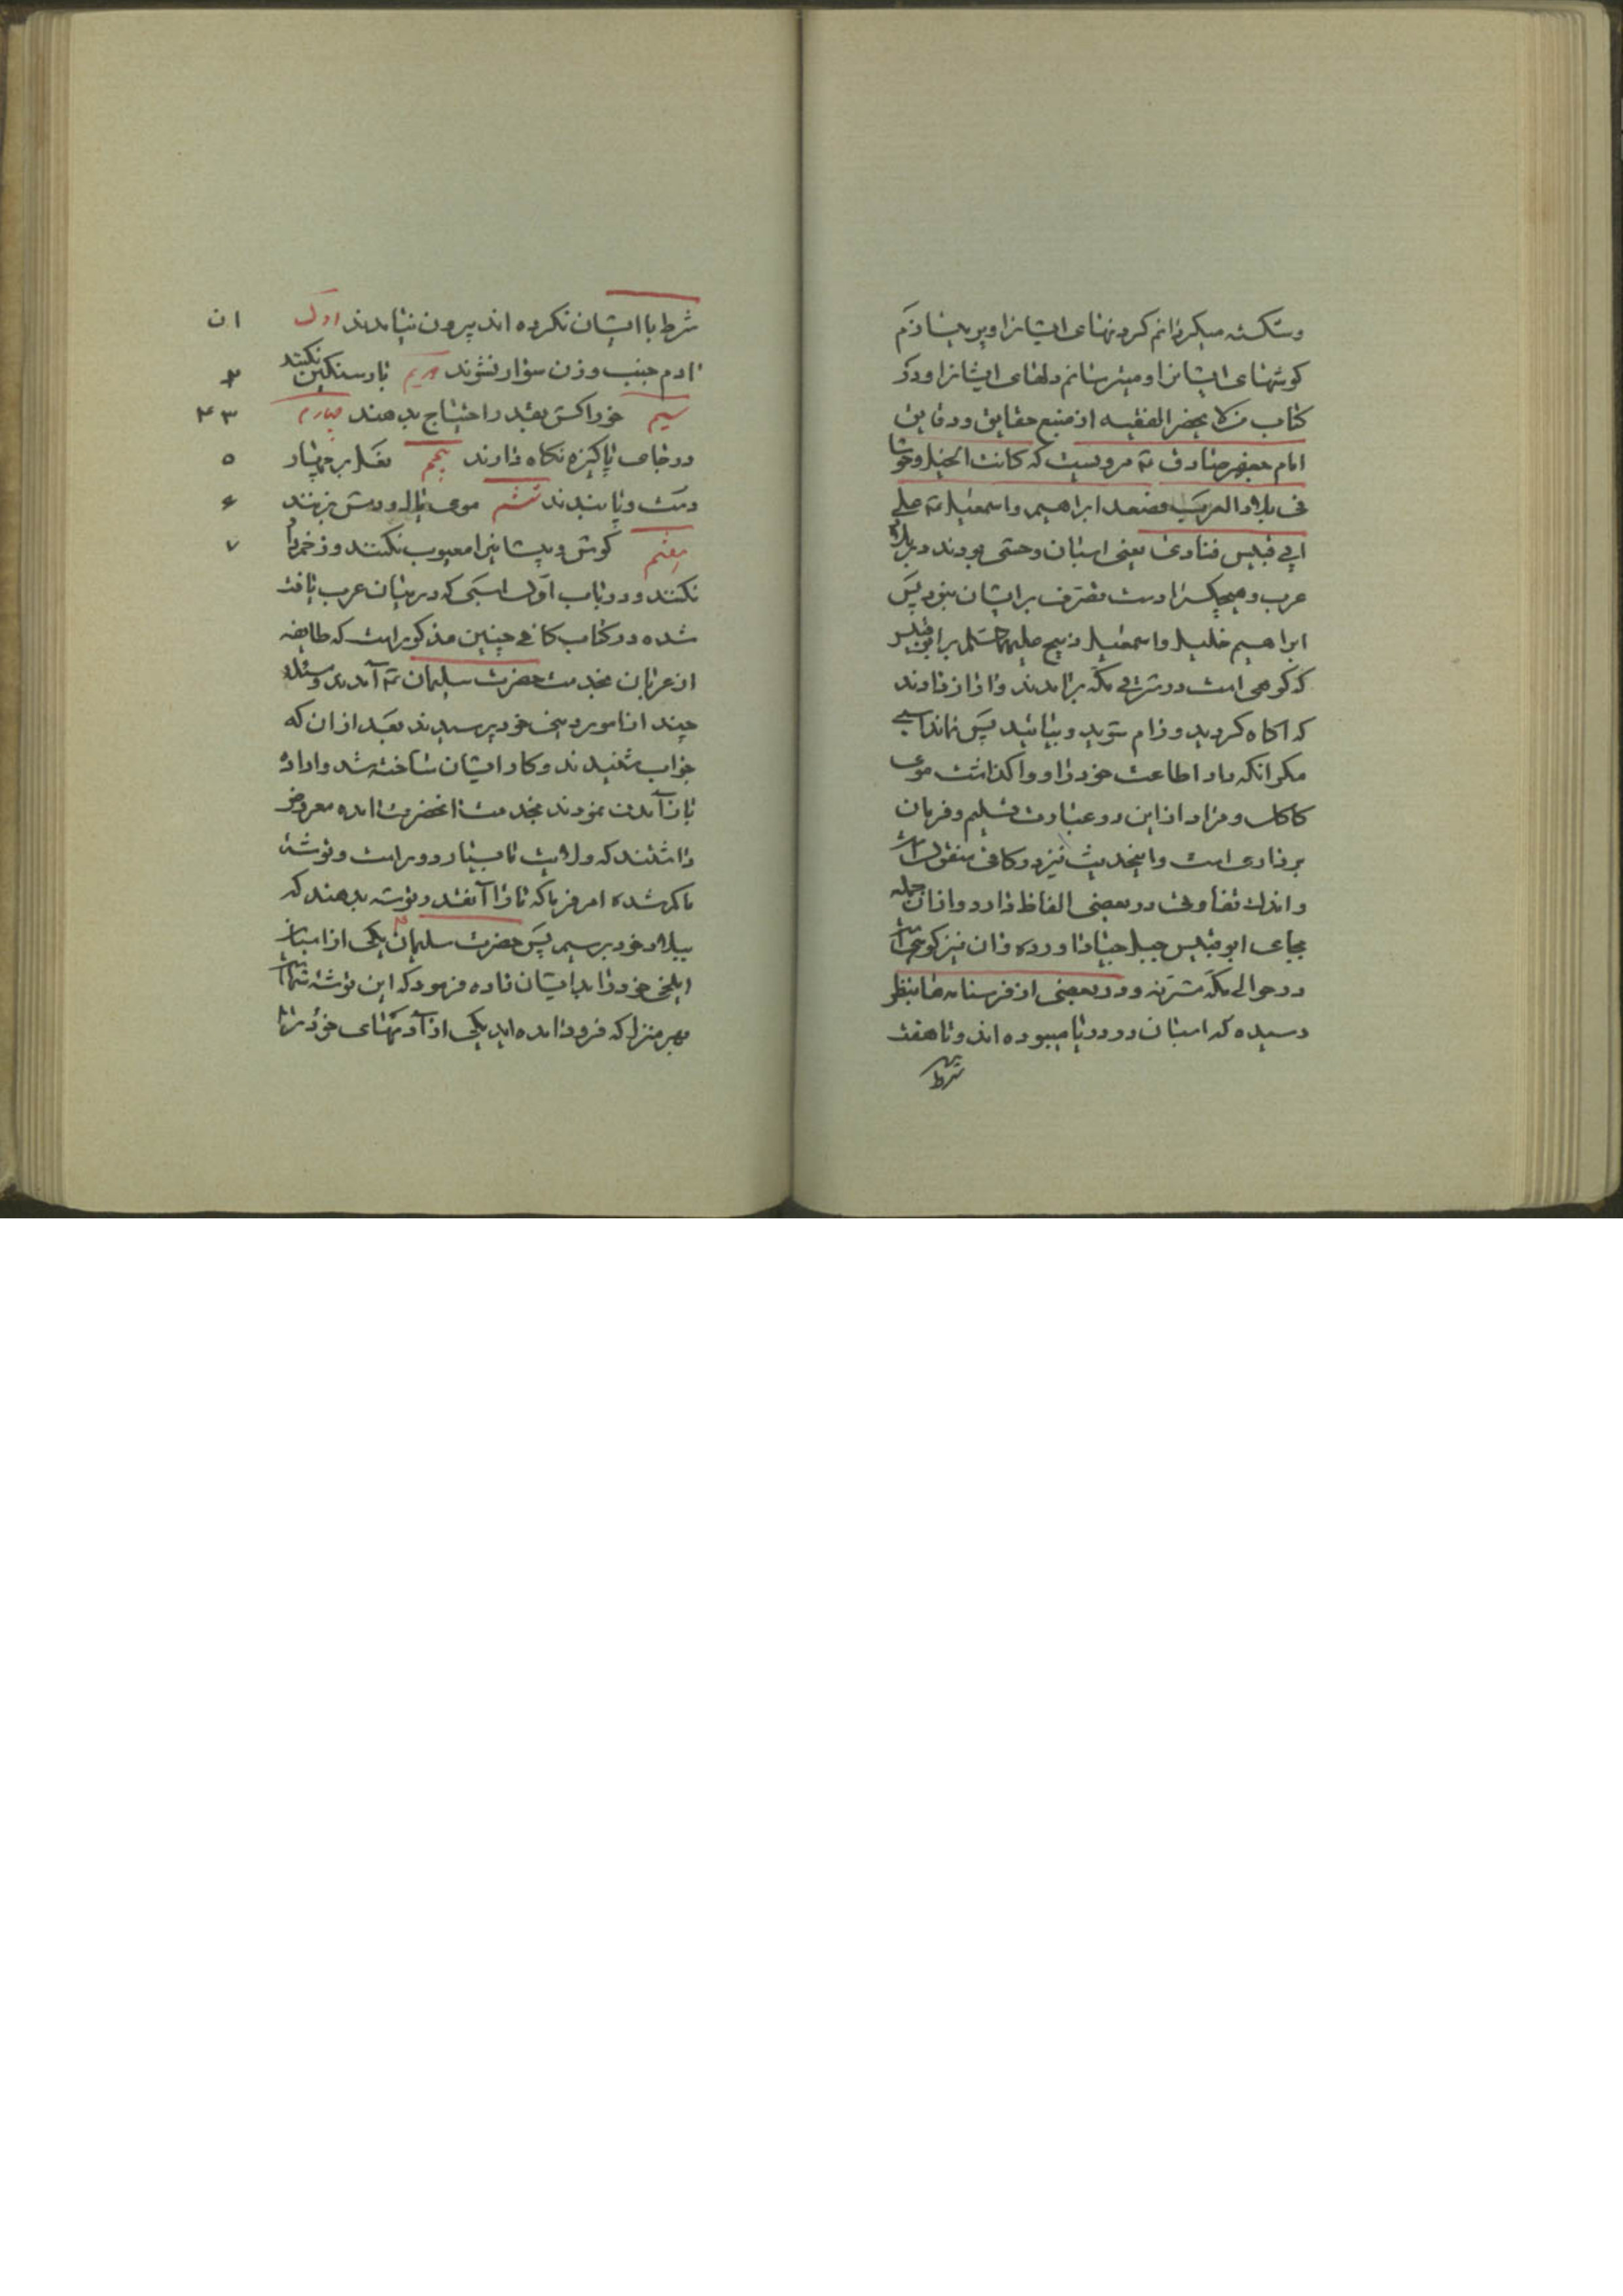 و شکسته میکردانم کردنهای ایشانرا و پر میسازم
کوشهای ایشانرا و میترسانم دلهای ایشانرا و در
کتاب من لا یحضر الفقیه از منبع حقایق و دقایق
امام جعفر صادق ع مرویست که کانت الخیل وحوشا
فی بلاد العرب فصعد ابراهیم و اسمعیل ع علی
ابی قبیس فنادی یعنی اسبان وحشی بودند در بلاد
عرب و هیچکس را دست تصرف بر ایشان نبود پس
ابراهیم خلیل و اسمعیل ذبیح علیهما السلم بر ابو قبیس
که کوهی است در شرقی مکه برامدند و اواز دادند
که اکاه کردید و رام شوید و بیائید پس نماند اسبی
مکر انکه داد اطاعت خود را و واکذاشت موی
کاکل و مراد از این دو عبارت تسلیم و فرمان
برداری است و اینحدیث نیز در کافی منقول است
و اندک تفاوتی در بعضی الفاظ دارد و از ان جمله
بجای ابو قبیس جبل جیاد اورده و ان نیز کوهی است
در حوالی مکه مشرفه و در بعضی از فرسنامه ها بنظر
رسیده که اسبان در دریا میبوده اند و تا هفت
شرط
شرط با ایشان نکرده اند بیرون نیامدند اول ان
ادم جنب و زن سوار نشوند دویم بار سنکین نکنند ۲
سیم خوراکش بقدر احتیاج بدهند چهارم ۳ ۴
در جای پاکیزه نکاه دارند پنجم نعل بر چهار ۵
دست و پا ببندند ششم موی یال و دمش نزنند ۶
هفتم کوش و پیشانیرا معیوب نکنند و زخم را ۷
نکنند و در باب اول اسبی که در میان عرب یافت
شده در کتاب کافی چنین مذکور است که طایفه
از عربان بخدمت حضرت سلیمان ع آمدند و مسئله
چند از امور دین خود پرسیدند بعد از ان که
جواب شنیدند و کار ایشان ساخته شد و اراده
باز آمدن نمودند بخدمت انحضرت امده معروض
داشتند که ولایت ما بسیار دور است و توشه
ما کم شده امر فرما که ما را آنقدر توشه بدهند که
ببلاد خود برسیم پس حضرت سلیمان ع یکی از اسبان
ایلخی خود را بایشان داده فرمود که این توشه شما است
بهر منزل که فرود امده اید یکی از آدمهای خود را